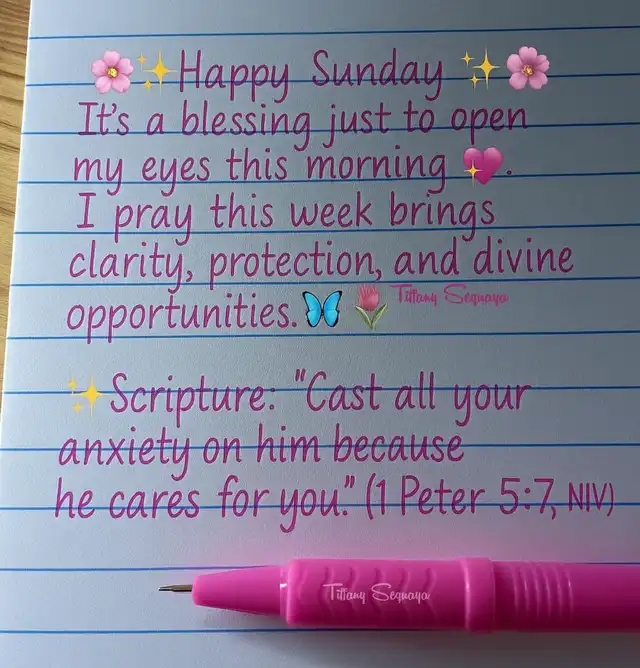 🌸✨Happy Sunday ✨🌸
It's a blessing just to open
my eyes this morning 💖.
I pray this week brings
clarity, protection, and divine
opportunities.🦋🌷Tiffany Sequaya
✨Scripture: "Cast all your
anxiety on him because
he cares for you." (1 Peter 5:7, NIV)
Tiffany Sequaya